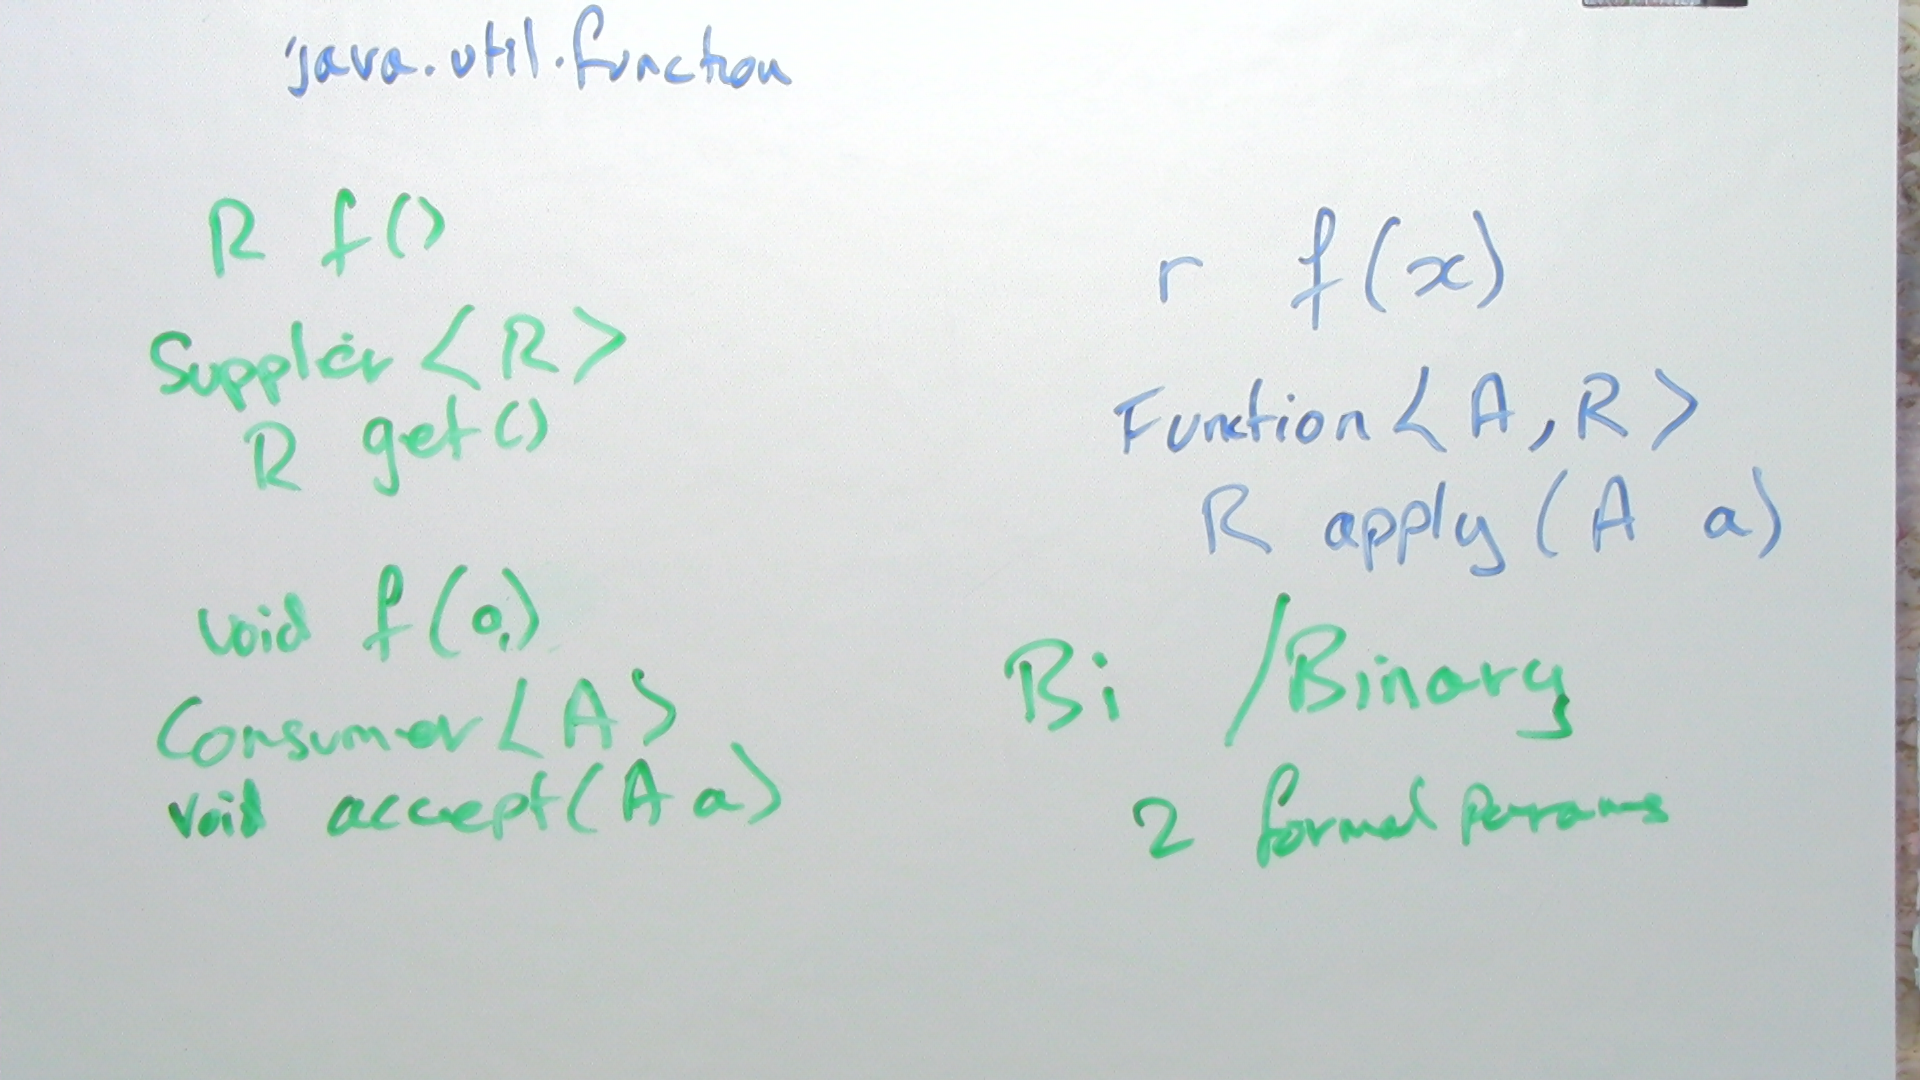 java.util.function
R f()
Supplier<R>
R get()
void f(a)
Consumer<A>
void accept(A a)
r f(x)
Function<A,R>
R apply(A a)
Bi /Binary
2 formal params